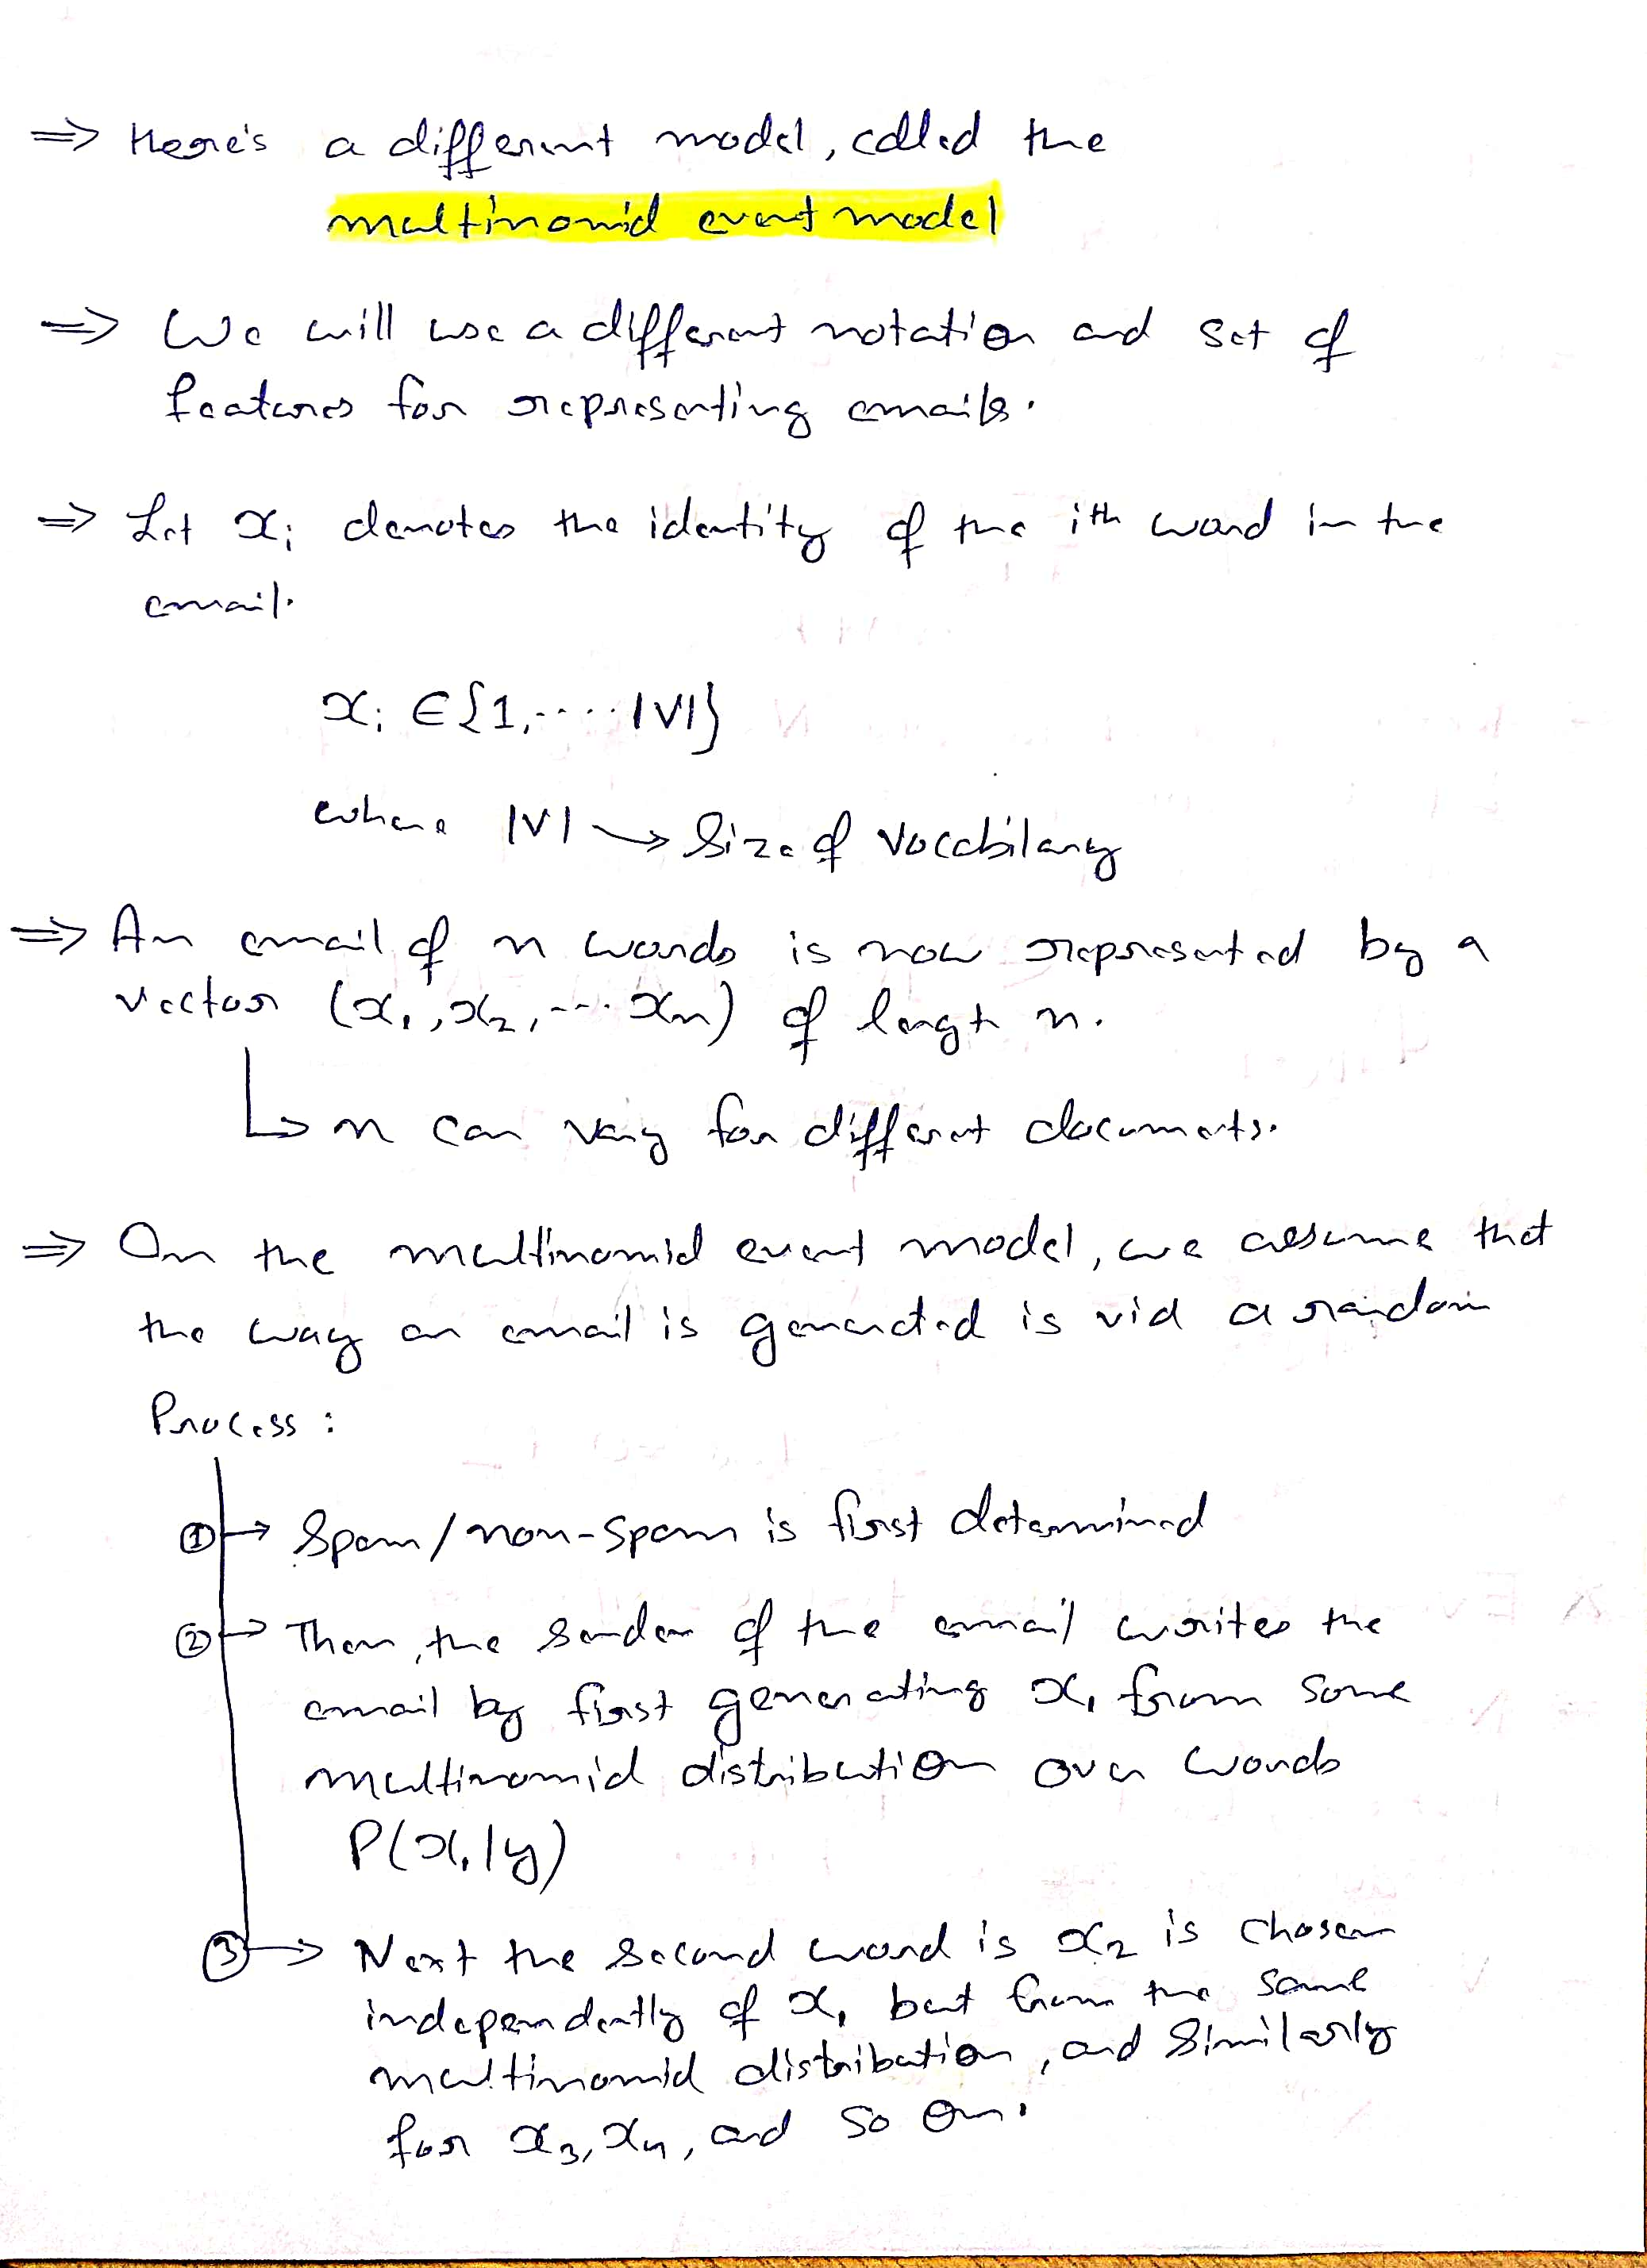 ⇒ Here's a different model, called the
multinomial event model
⇒ We will use a different notation and set of
features for representing emails.
⇒ Let xᵢ denotes the identity of the iᵗʰ word in the
email.
xᵢ ∈ {1,....|V|}
where |V| → Size of Vocabilary
⇒ An email of n words is now represented by a
vector (x₁,x₂,... xₙ) of lengt n.
↳ n can vary for different documents.
⇒ On the multinomial event model, we assume that
the way an email is generated is via a random
Process :
① → Spam/non-spam is first determined
② → Then, the sender of the email writes the
email by first generating x₁ from some
multinomial distribution over words
P(x₁|y)
③ → Next the second word is x₂ is chosen
independently of x₁ but from the same
multinomial distribution, and similarly
for x₃, x₄, and so on.